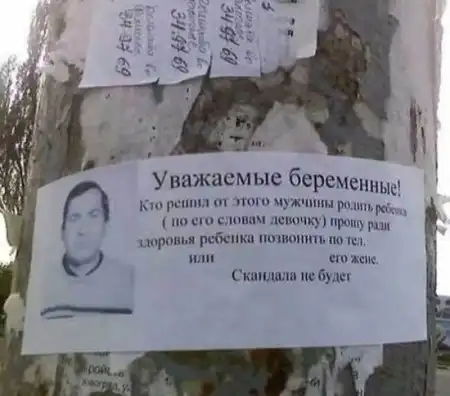 34.97 69
34.97 69
34.97 69
Уважаемые беременные!
Кто решил от этого мужчины родить ребенка
( по его словам девочку) прошу ради
здоровья ребенка позвонить по тел.
или его жене.
Скандала не будет